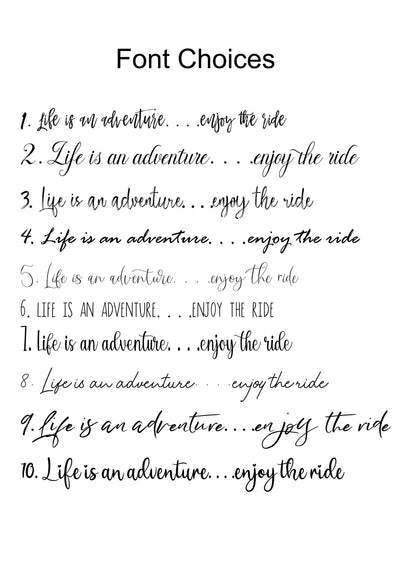 Font Choices
1. Life is an adventure. . . .enjoy the ride
2. Life is an adventure. . . .enjoy the ride
3. Life is an adventure. . . .enjoy the ride
4. Life is an adventure. . . .enjoy the ride
5. Life is an adventure. . . .enjoy the ride
6. LIFE IS AN ADVENTURE. . . .ENJOY THE RIDE
7. life is an adventure. . . .enjoy the ride
8. Life is an adventure. . . .enjoy the ride
9. Life is an adventure. . . .enjoy the ride
10. Life is an adventure. . . .enjoy the ride